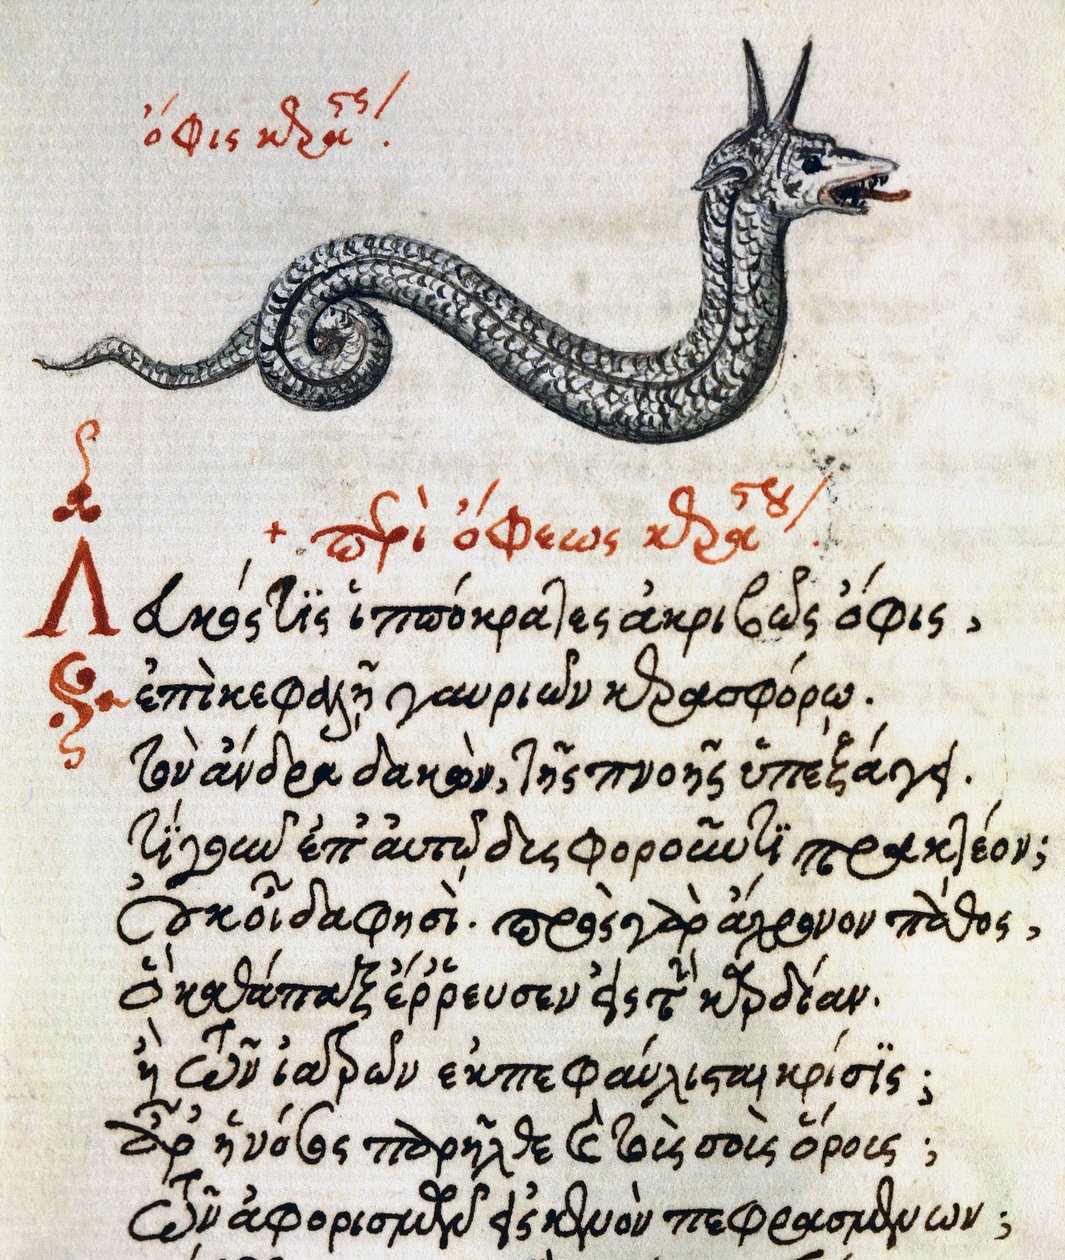 ὄφις κεράστης.
+ περὶ ὄφεως κεράστου.
τϊς ἱππόκρατες ἀκριβῶς ὄφις,
ἐπὶ κεφαλῇ γαυριῶν κερασφόρω.
τὸν ἄνδρα δακὼν, τῆς πνοῆς ὑπεξάγει.
τϊ γοῦν ἐπ' αὐτῶ δυσφοροῦντϊ πρακτέον;
Οὐκ οἶδα φησὶ. πρὸς γὰρ ἄχρονον πάθος,
ὃ καθάπαξ ἔρρευσεν εἰς τὴν καρδίαν.
ἢ τῶν ἰατρῶν ἐκπεφαύλισται κρίσϊς;
ἆρ' ἡ νόσος παρῆλθε τοῖς σοῖς ὅροις;
τῶν ἀφορισμῶν εἰς κενὸν πεφρασμένων;